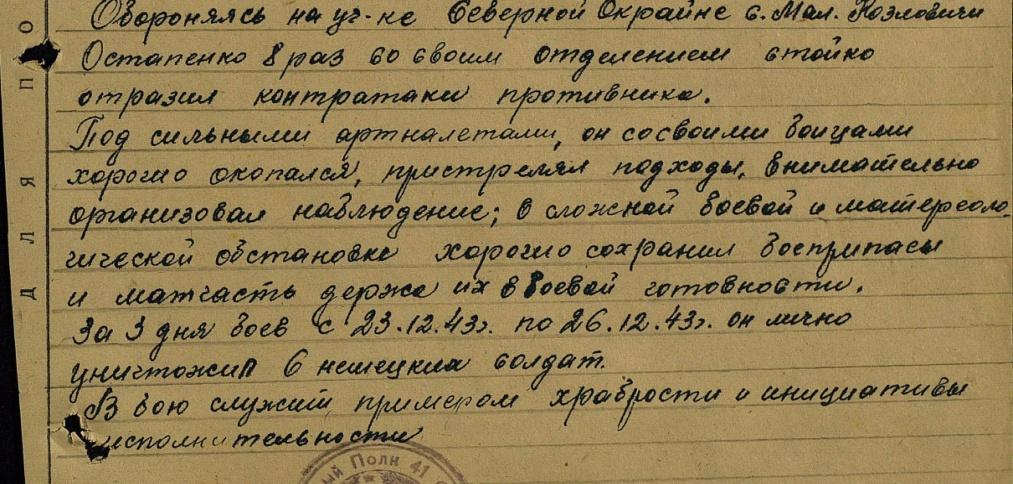 Обороняясь на уч-ке Северной Окрайне с. Мал. Козловичи
Остапенко 8 раз со своим отделением стойко
отразил контратаки противника.
Под сильными артналетами, он со своими бойцами
хорошо окопался, пристрелял подходы, внимательно
организовал наблюдение; в сложной боевой и матереоло-
гической обстановке хорошо сохранил боеприпасы
и матчасть держа их в боевой готовности.
За 3 дня боев с 23.12.43г. по 26.12.43г. он лично
уничтожил 6 немецких солдат.
В бою служит примером храбрости и инициативы
исполнительности
ДЛЯ ПО
ый Полк 41